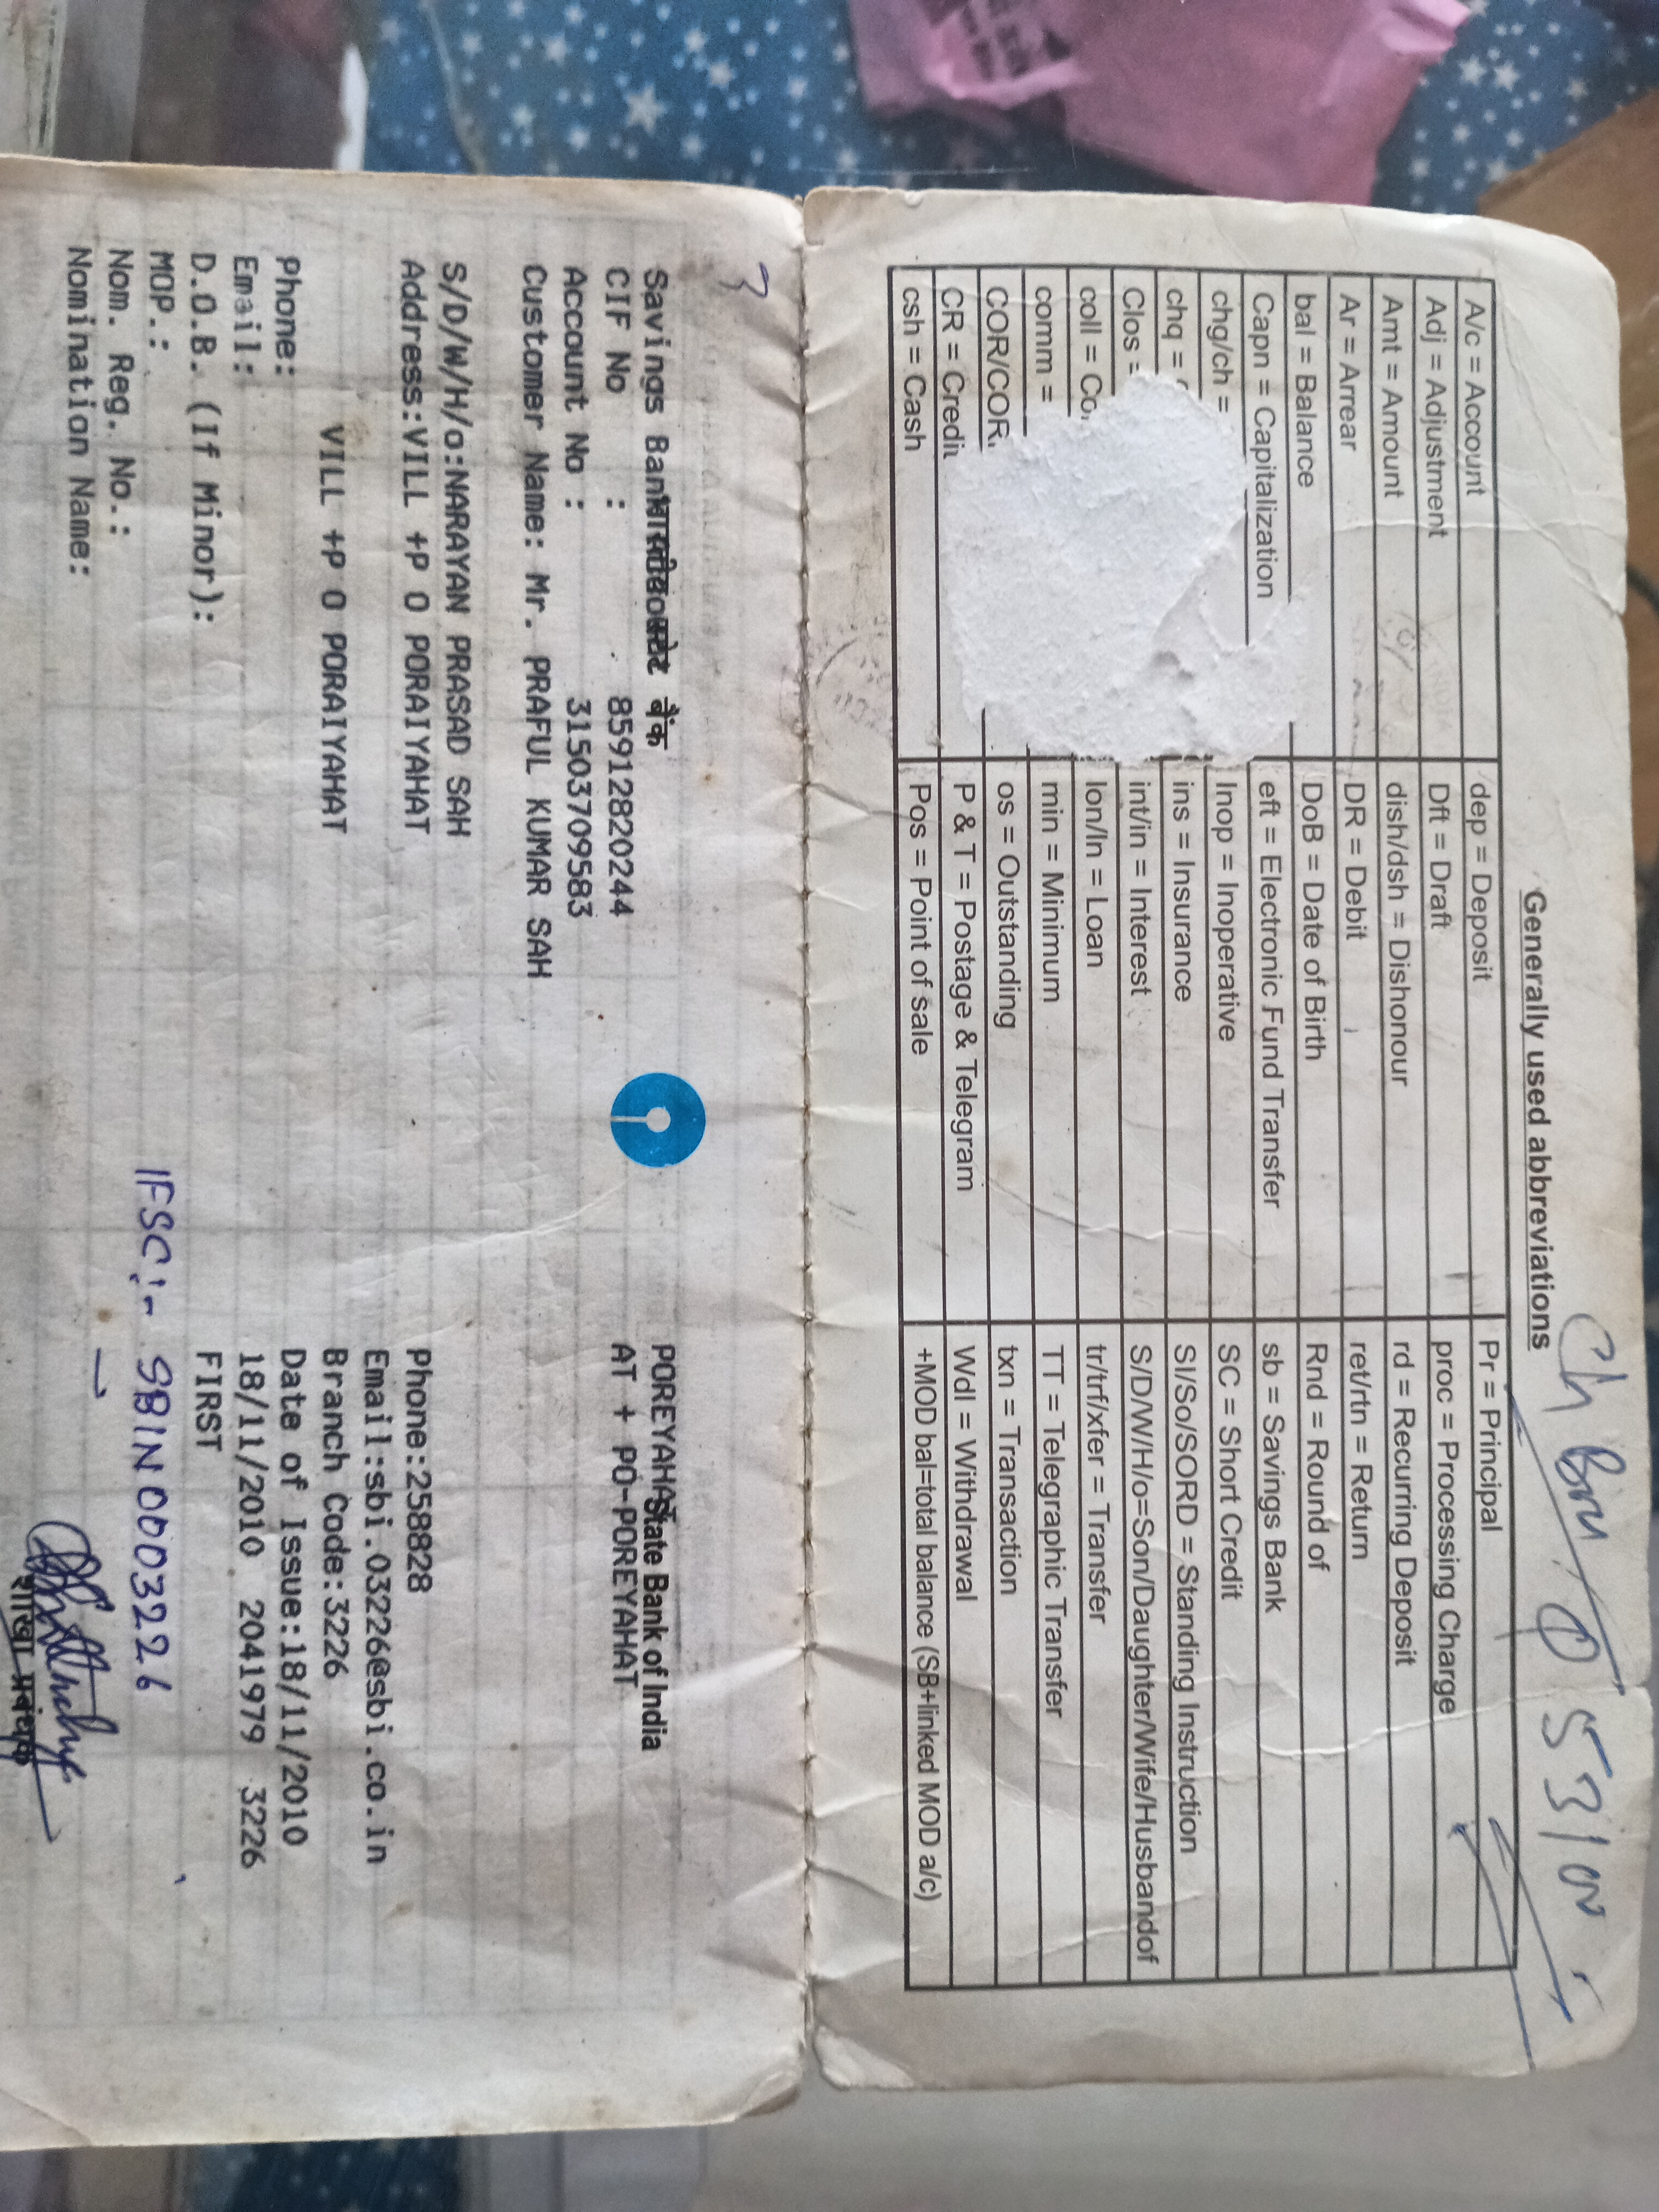 Generally used abbreviations
A/c = Account dep = Deposit Pr = Principal
Adj = Adjustment Dft = Draft proc = Processing Charge
Amt = Amount dish/dsh = Dishonour rd = Recurring Deposit
Ar = Arrear DR = Debit ret/rtn = Return
bal = Balance DoB = Date of Birth Rnd = Round of
Capn = Capitalization eft = Electronic Fund Transfer sb = Savings Bank
chg/ch = Inop = Inoperative SC = Short Credit
chq = ins = Insurance SI/So/SORD = Standing Instruction
Clos = int/in = Interest S/D/W/H/o=Son/Daughter/Wife/Husbandof
coll = lon/ln = Loan tr/trf/xfer = Transfer
comm = min = Minimum TT = Telegraphic Transfer
COR/COR os = Outstanding txn = Transaction
CR = Credi P & T = Postage & Telegram Wdl = Withdrawal
csh = Cash Pos = Point of sale +MOD bal=total balance (SB+linked MOD a/c)
Savings Bank बैंक POREYAHAT State Bank of India
CIF No : 85912820244 AT + PO-POREYAHAT
Account No : 31503709583
Customer Name: Mr. PRAFUL KUMAR SAH
S/D/W/H/o:NARAYAN PRASAD SAH
Address:VILL +P O PORAIYAHAT Phone:258828
Email:sbi.03226@sbi.co.in
VILL +P O PORAIYAHAT Branch Code:3226
Phone: Date of Issue:18/11/2010
Email: 18/11/2010 2041979 3226
D.O.B. (If Minor): FIRST
MOP.:
Nom. Reg. No.: IFSC:- SBIN0003226
Nomination Name:
शाखा प्रबंधक